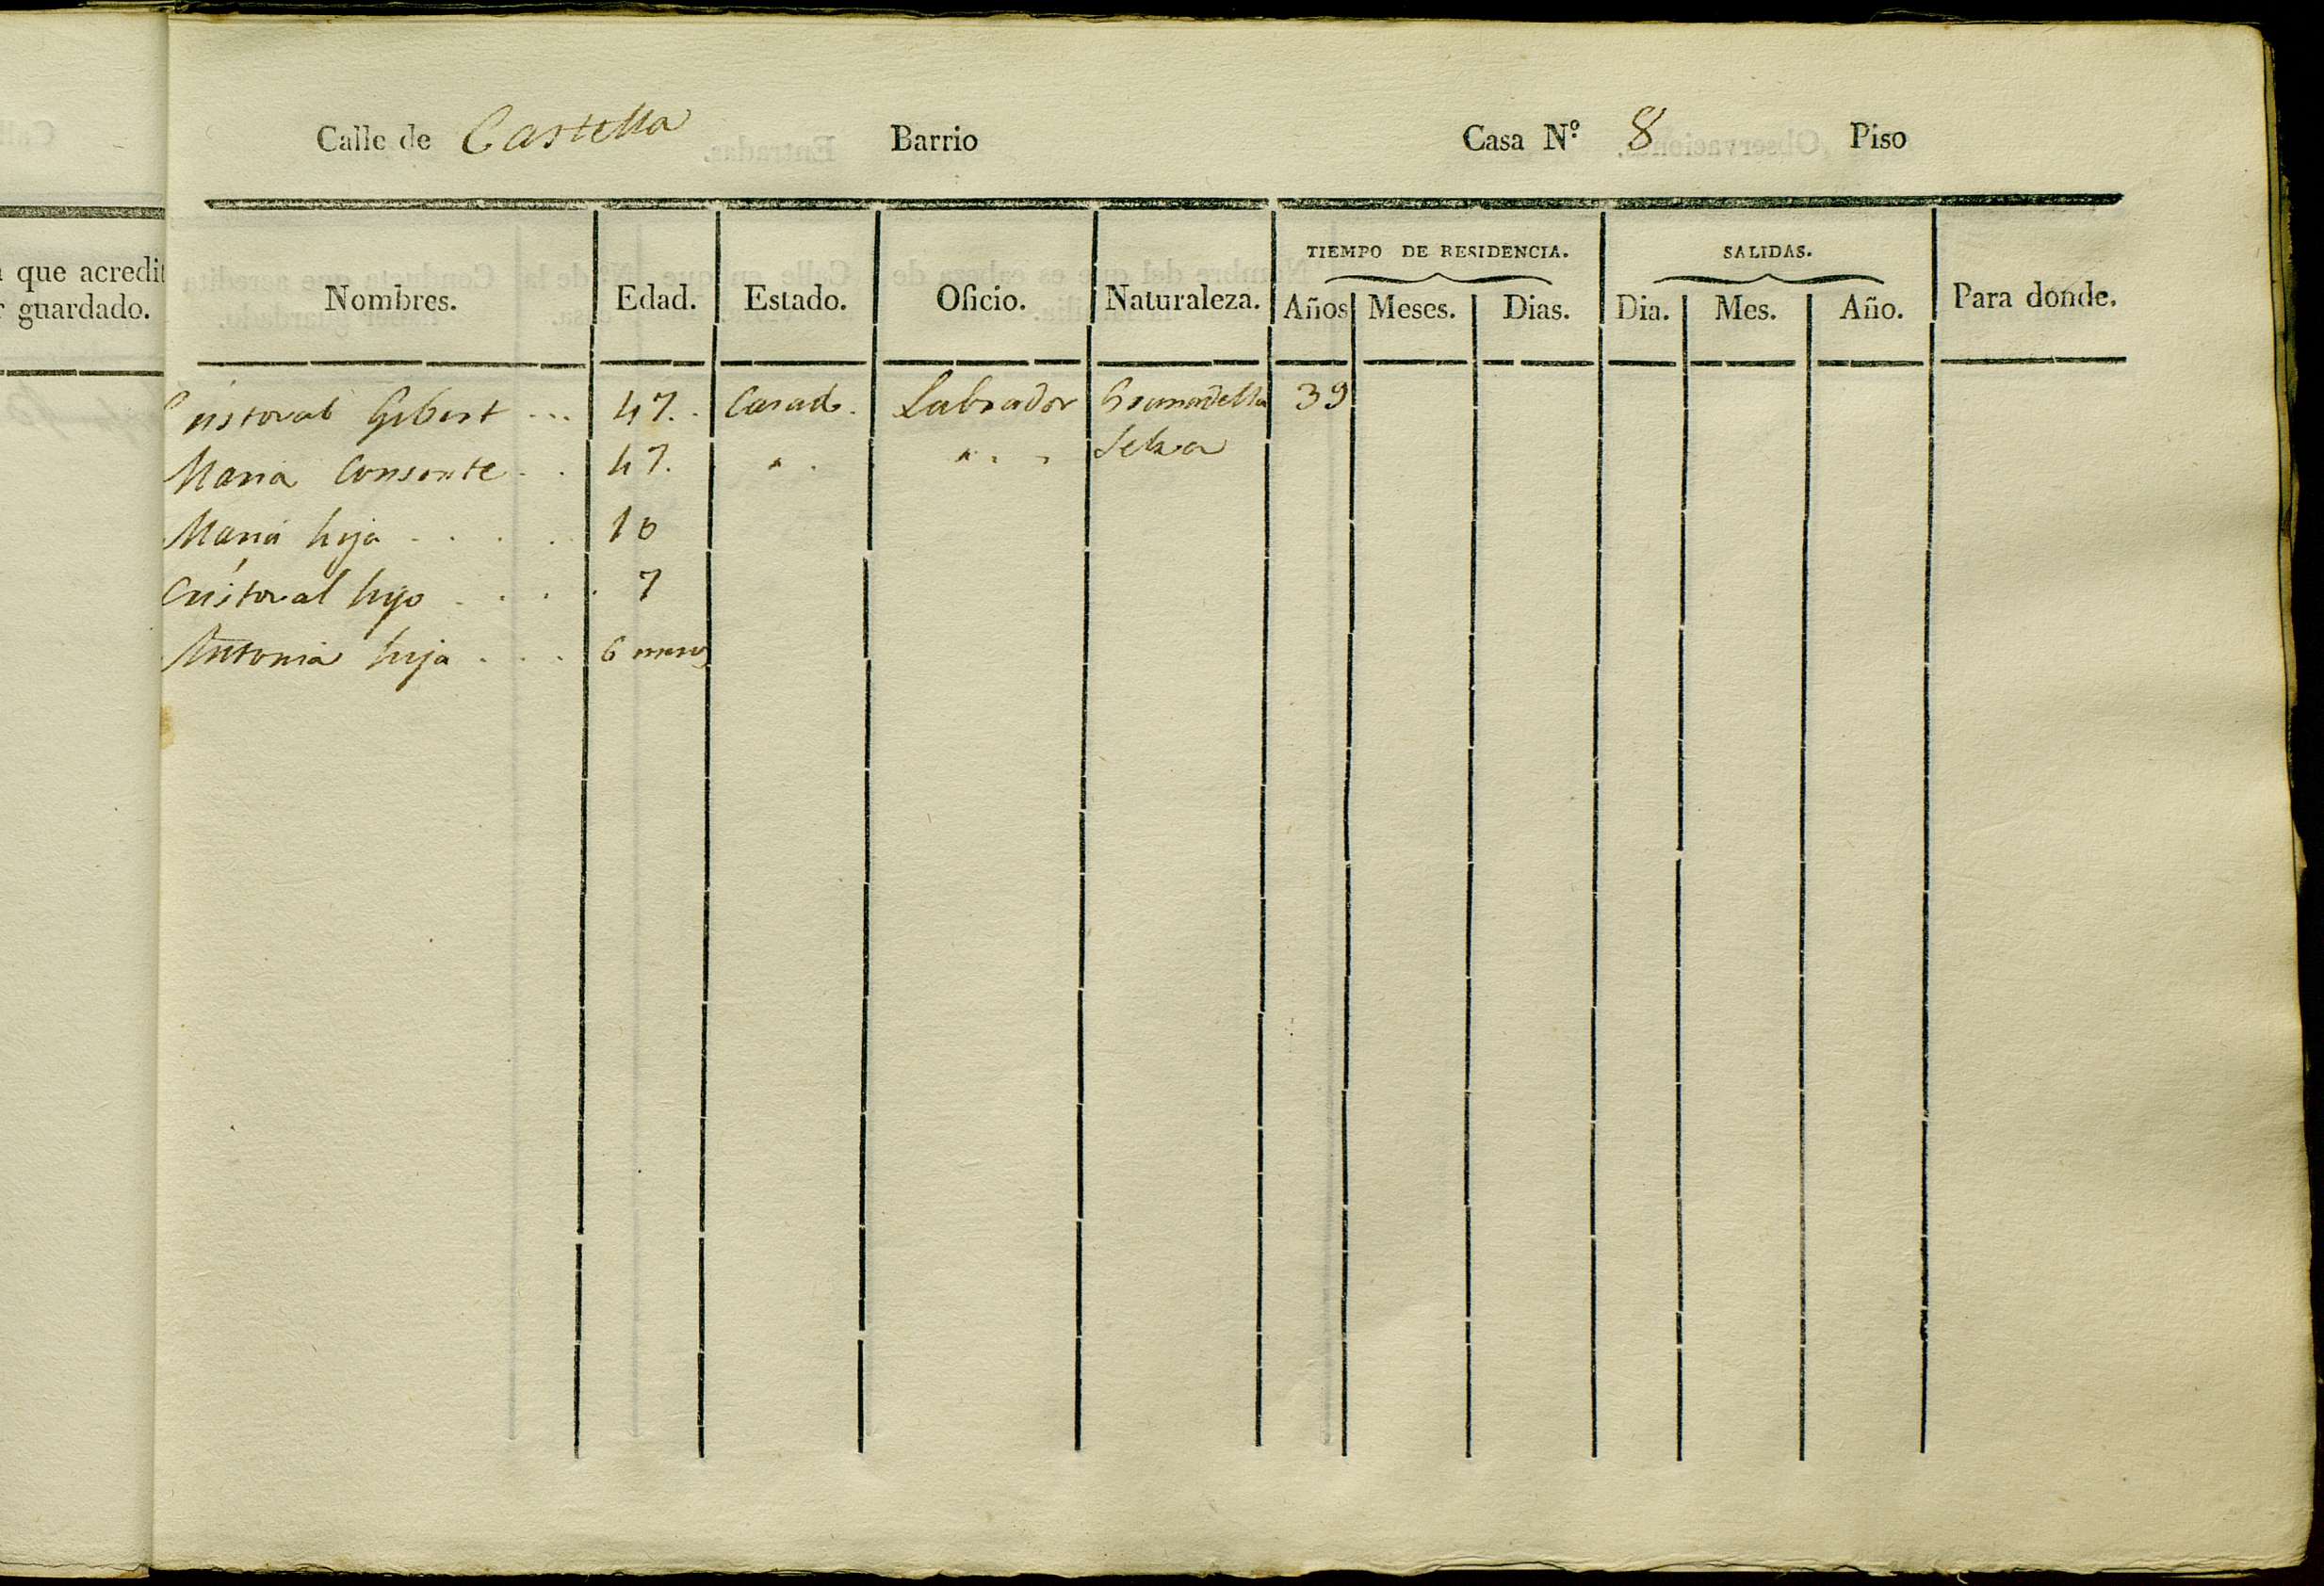 que acredit
guardado.
Calle de Castella Barrio Casa Nº 8 Piso
TIEMPO DE RESIDENCIA. SALIDAS.
Nombres. Edad. Estado. Oficio. Naturaleza. Años Meses. Dias. Dia. Mes. Año. Para donde.
Cristoval Gibert ... 47. Casado. Labrador Granadella 39
Maria Consorte . . 47. " . " . . Selva
Maria hija . . . . 10
Cristoval hijo . . . . 7
Antonia hija . . . 6 meses